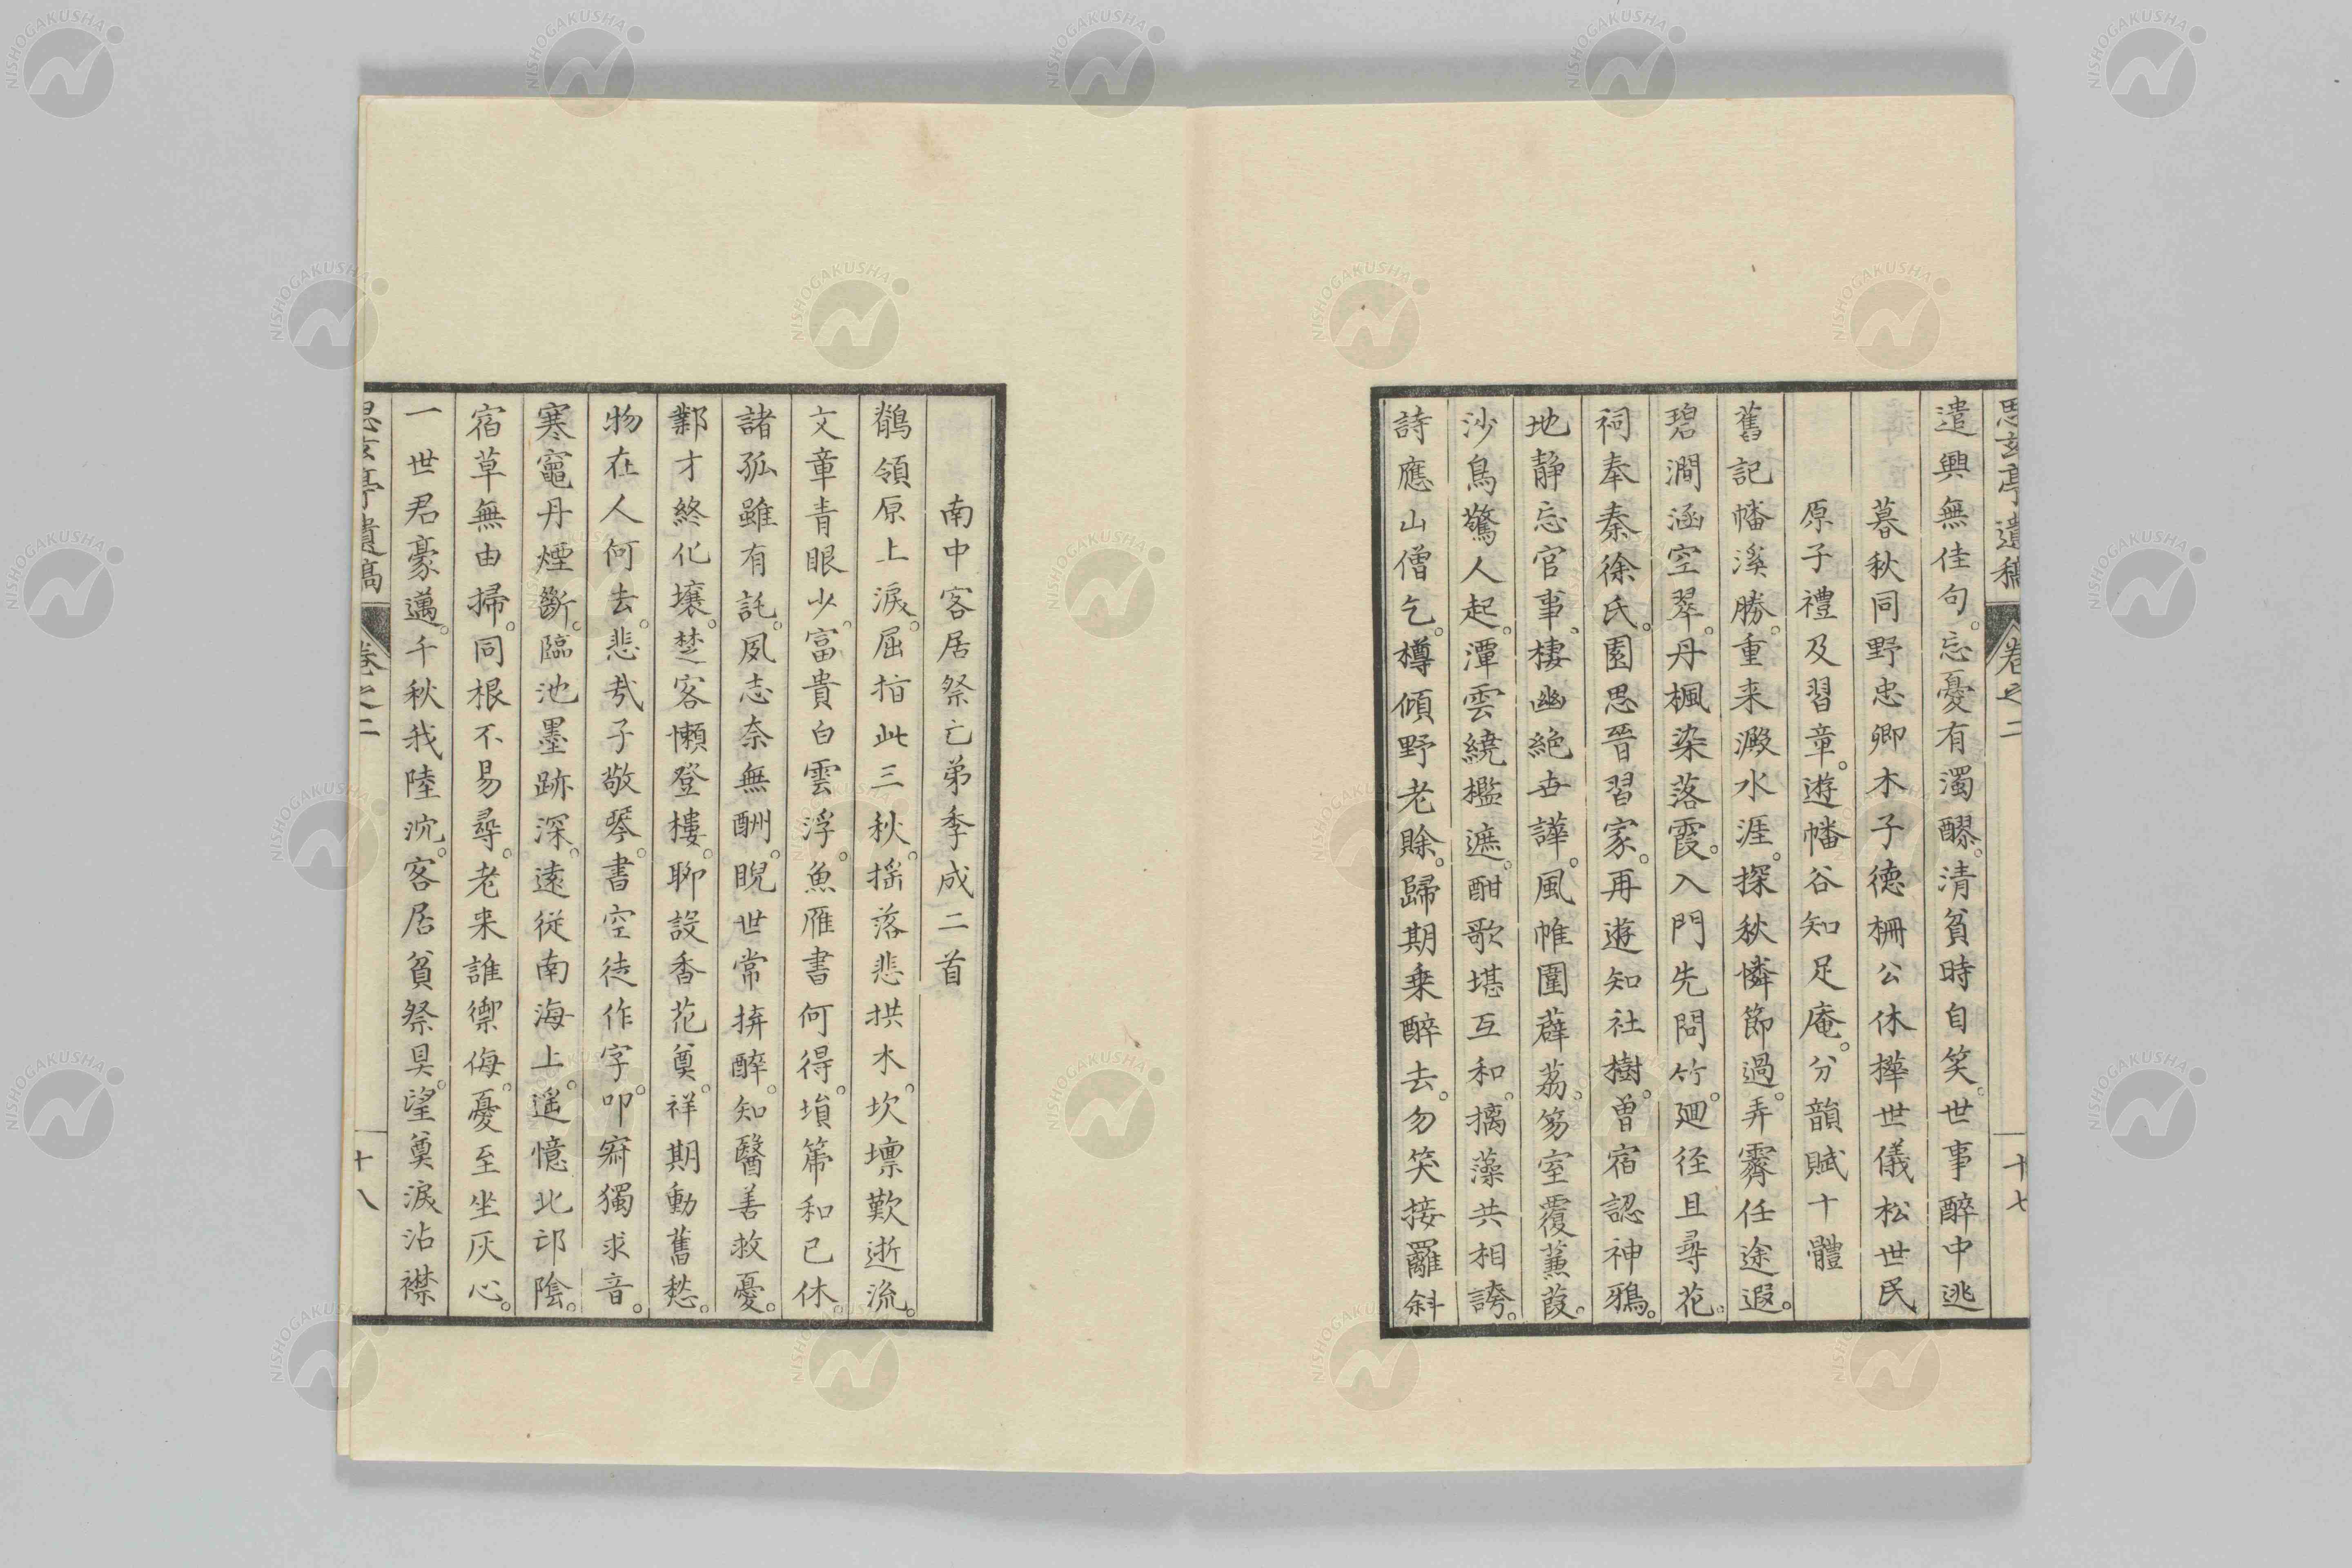 思玄亭遺稿 卷之二 十七
遣興無佳句。忘憂有濁醪。清貧時自笑。世事醉中逃
暮秋同野忠卿木子德柵公休樺世儀松世民
原子禮及習章。遊幡谷知足庵。分韻賦十體
舊記幡溪勝。重来澱水涯。探秋憐節過。弄霽任途遐。
碧澗涵空翠。丹楓染落霞。入門先問竹。廻径且尋花。
祠奉秦徐氏。園思晉習家。再遊知社樹。曽宿認神鴉。
地静忘官事。棲幽絶世譁。風帷圍薜荔。笏室覆蒹葭。
沙鳥驚人起。潭雲繞檻遮。酣歌堪互和。摛藻共相誇。
詩應山僧乞。樽傾野老賖。歸期乗醉去。勿笑接羅斜
南中客居祭亡弟季成二首
鶺領原上淚。屈指此三秋。揺落悲拱木。坎壈歎逝流。
文章青眼少。富貴白雲浮。魚雁書何得。塤箎和已休。
諸孤雖有託。夙志奈無酬。睨世常拚醉。知醫善救憂。
鄴才終化壤。楚客懶登樓。聊設香花奠。祥期動舊愁。
物在人何去。悲哉子敬琴。書空徒作字。叩寂獨求音。
寒竈丹煙斷。臨池墨跡深。遠從南海上。遥憶北邙陰。
宿草無由掃。同根不易尋。老来誰禦侮。憂至坐灰心。
一世君豪邁。千秋我陸沉。客居貧祭具。望奠淚沾襟
思玄亭遺稿 卷之二 十八
NISHOGAKUSHA